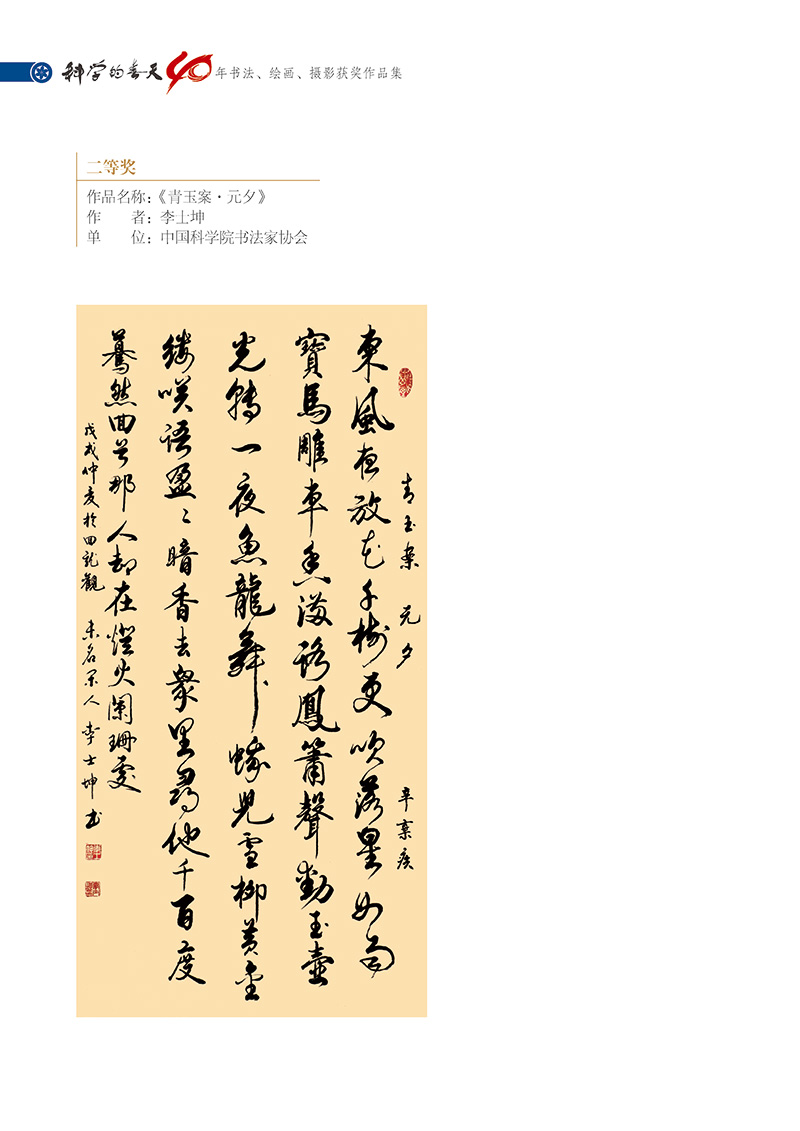 科学的春天40年书法、绘画、摄影获奖作品集
二等奖
作品名称：《青玉案·元夕》
作　　者：李士坤
单　　位：中国科学院书法家协会
青玉案 元夕 辛棄疾
東風夜放花千樹更吹落星如雨
寶馬雕車香滿路鳳簫聲動玉壺
光轉一夜魚龍舞蛾兒雪柳黃金
縷咲語盈〻暗香去衆里尋他千百度
驀然回首那人却在燈火闌珊處
戊戌仲夏於回龍觀 未名閑人 李士坤书